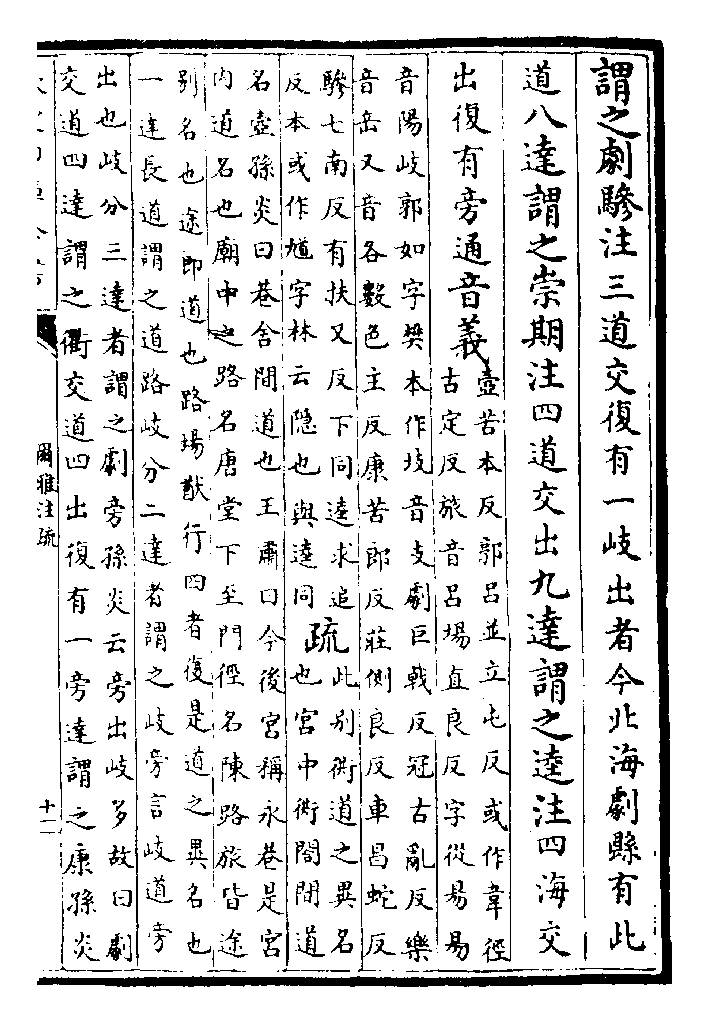 謂之劇驂注三道交復有一岐出者今北海劇縣有此
道八達謂之崇期注四道交出九達謂之逵注四海交
出復有旁通音義
壼苦本反郭呂並立屯反或作韋徑
古定反旅音呂場直良反字從昜昜
音陽岐郭如字樊本作歧音支劇巨戟反冠古亂反樂
音岳又音各數色主反康苦郎反莊側良反車昌蛇反
驂七南反有扶又反下同逵求追
反本或作馗字林云隱也與逵同
疏
此別衖道之異名
也宮中衖閤間道
名壼孫炎曰巷舍間道也王肅曰今後宮稱永巷是宮
内道名也廟中之路名唐堂下至門徑名陳路旅皆途
別名也途即道也路場猷行四者復是道之異名也
一達長道謂之道路岐分二達者謂之岐旁言岐道旁
出也岐分三達者謂之劇旁孫炎云旁出岐多故曰劇
交道四達謂之衢交道四出復有一旁達謂之康孫炎
爾雅注疏
十二